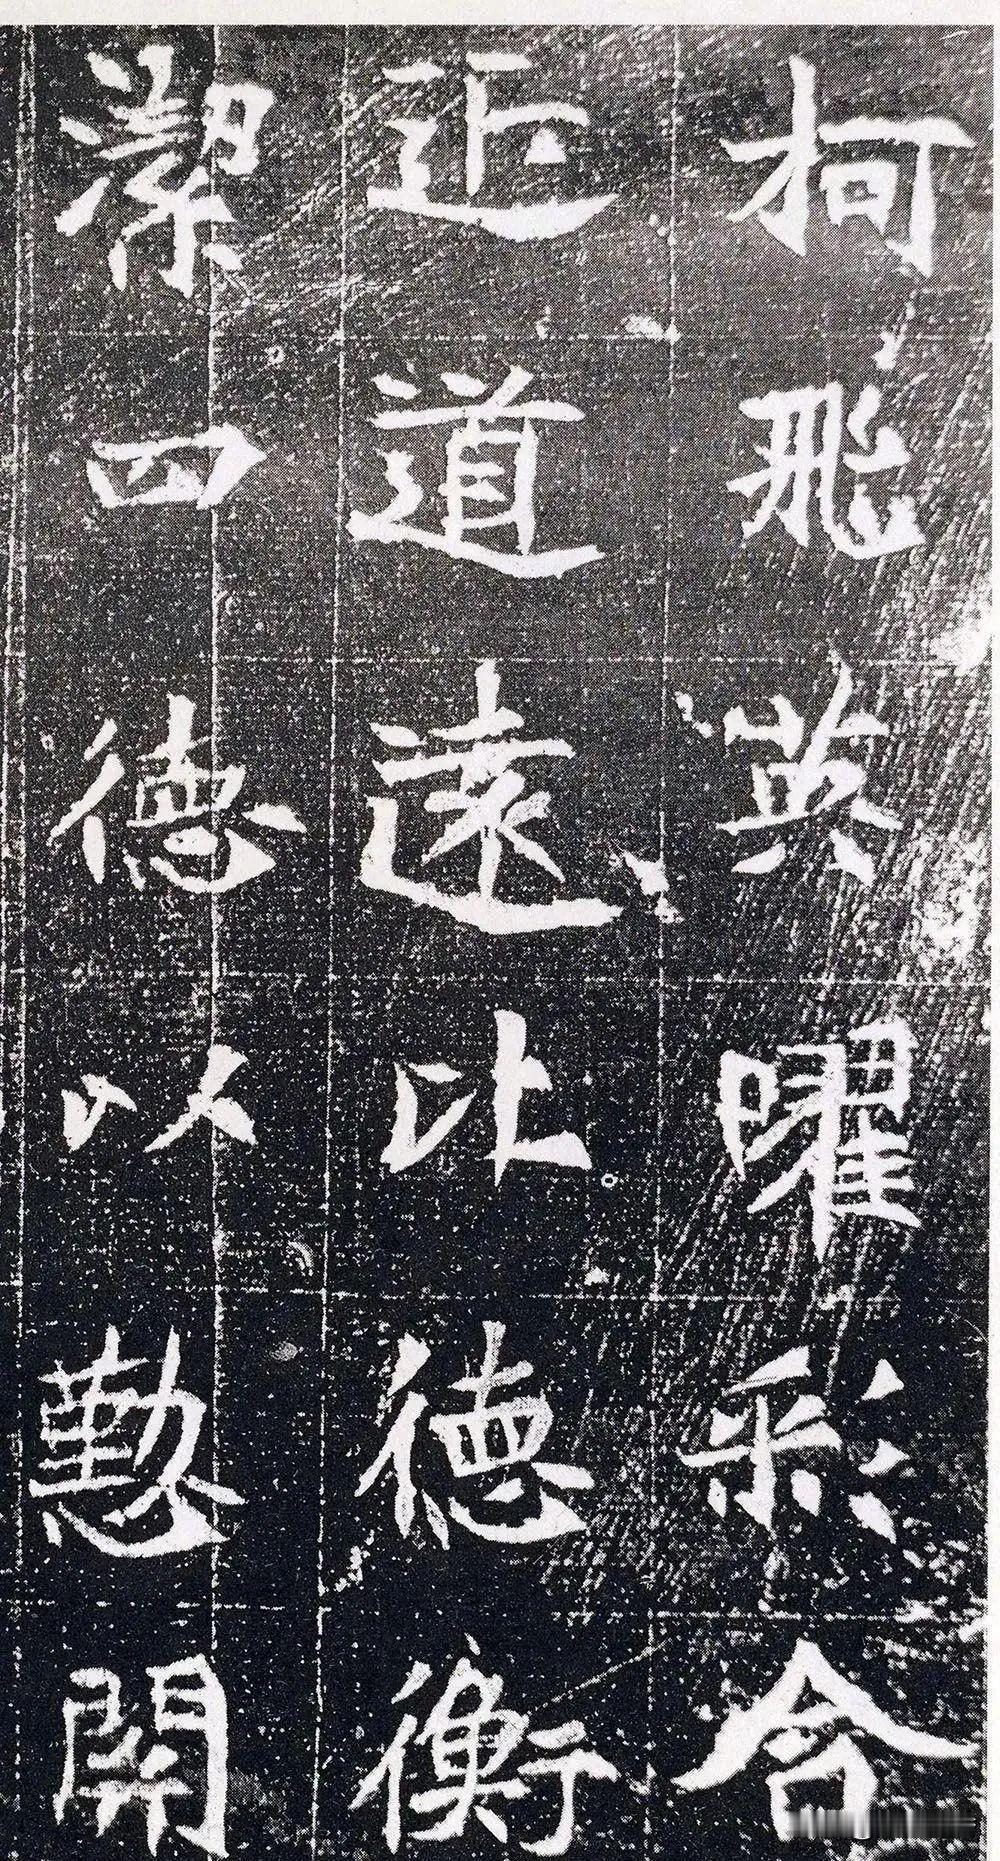 柯飛英曜彩合
近道遠比德衡
潔四德以懃開